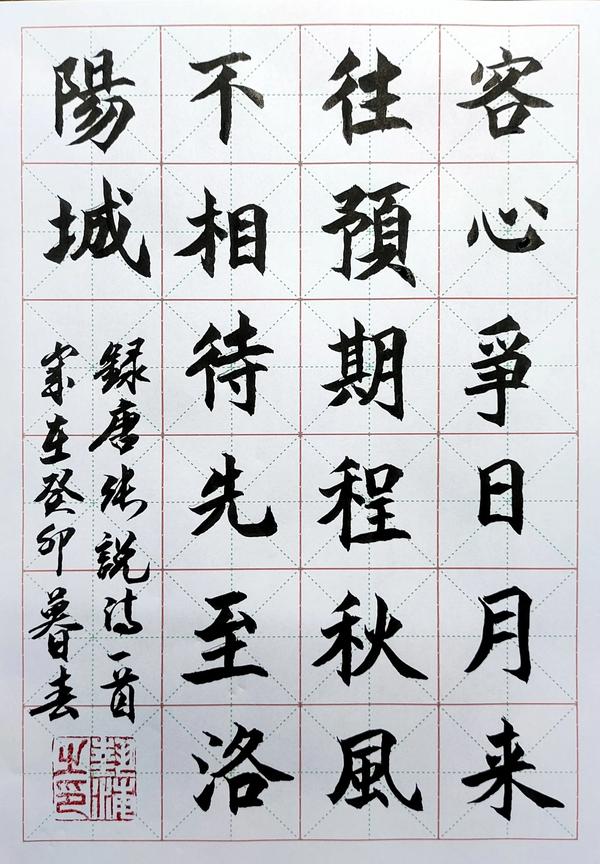 客心爭日月来
往預期程秋風
不相待先至洛
陽城
録唐張説詩一首
癸卯暮春
之印